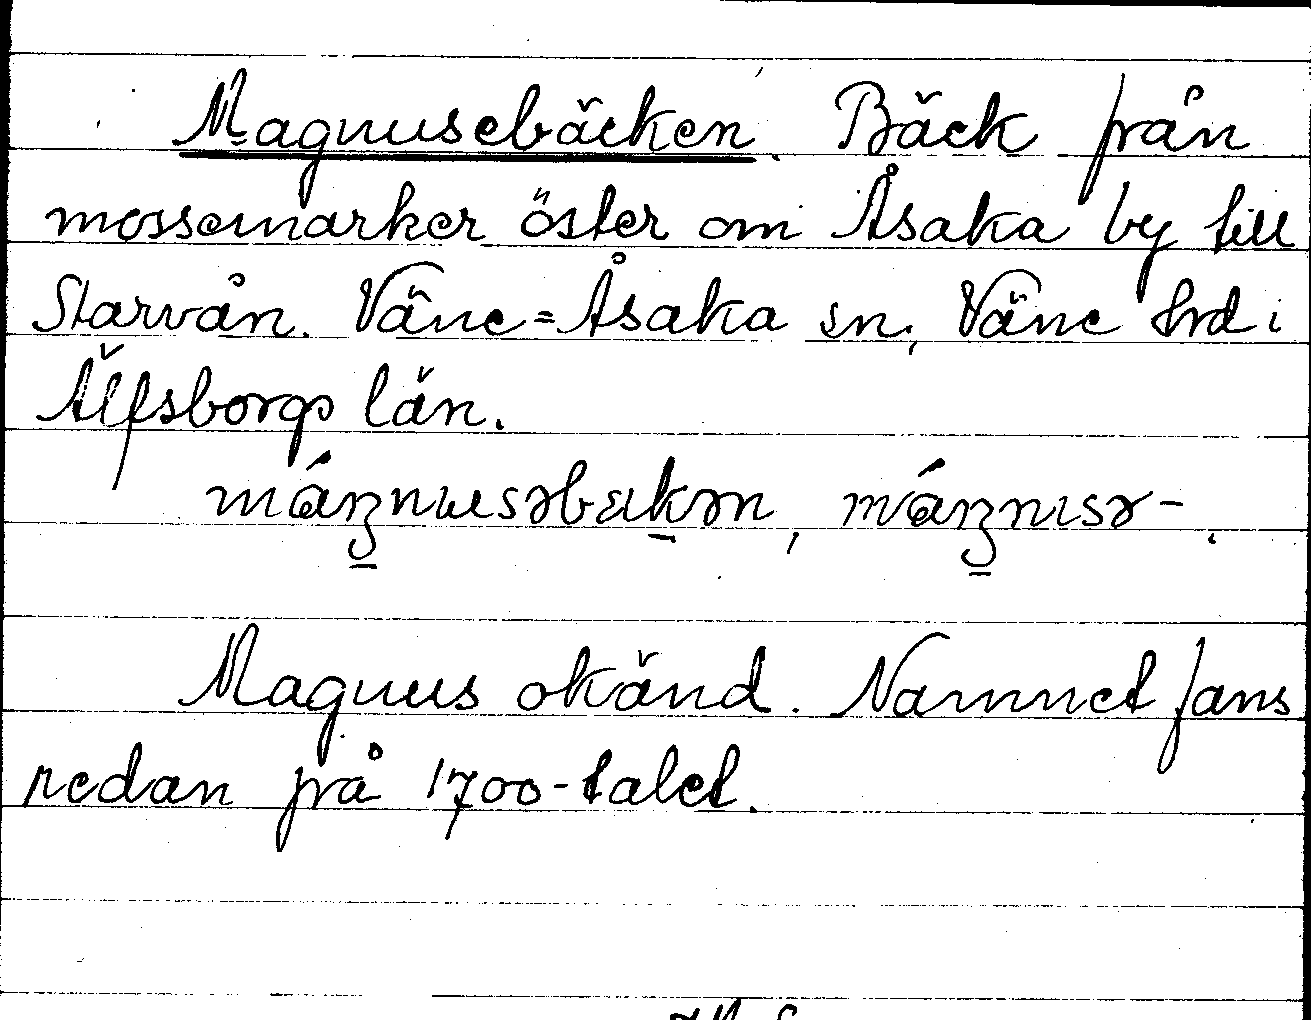 Magnusebäcken. Bäck från
mossemarker öster om Åsaka by till
Starvån. Väne=Åsaka sn, Väne hrd i
Älfsborgs län.
máŋnɯsəbækən, máŋnɩsə-.
Magnus okänd. Namnet fans
redan på 1700-talet.